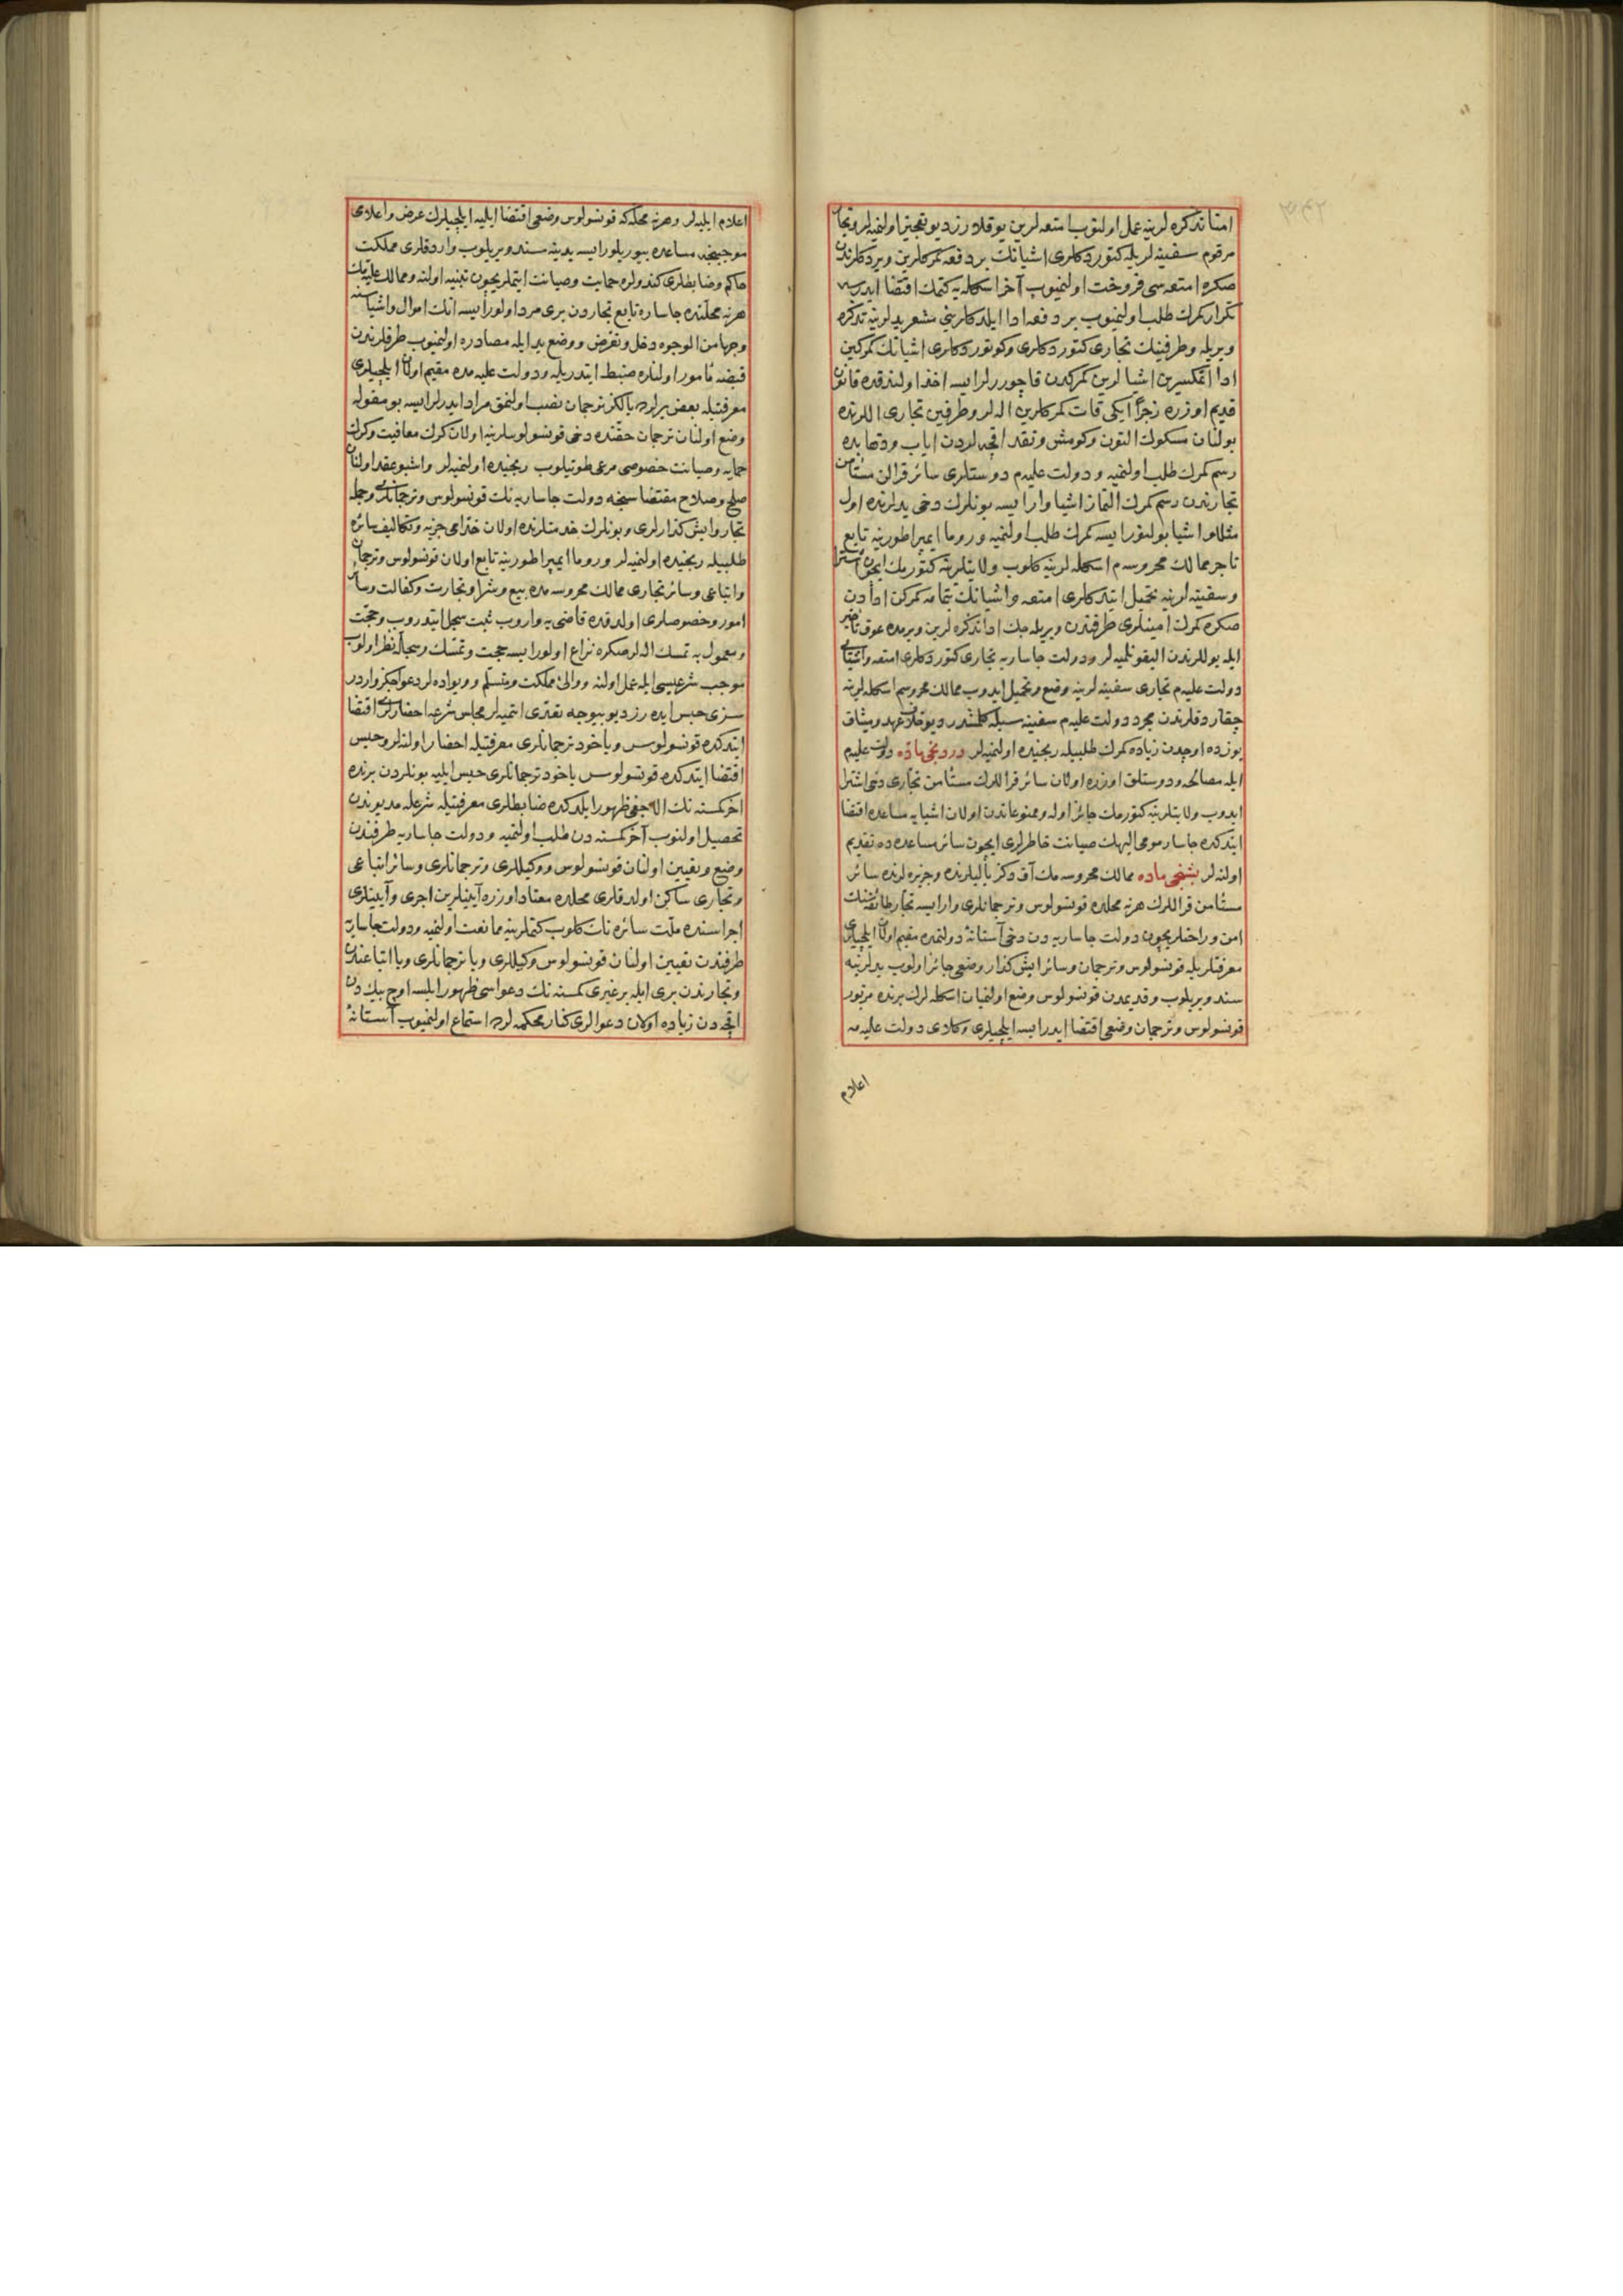 امنا تذكره لرينه عمل اولنوب امتعه لرين يوقلارز ديو تعجيز اولنميه لر و تجار
مرقوم سفينه لريله كتوردكلرى اشيانك بر دفعه كمركلرين ويردكلرندن
صكره امتعه سى فروخت اولنميوب آخر اسكله يه كتمك اقتضا ايدرسه
تكرار كمرك طلب اولنميوب بر دفعه ادا ايلدكلرينى مشعر يدلرينه تذكره
ويريله و طرفينك تجارى كتوردكلرى و كوتوردكلرى اشيانك كمركين
ادا ايتمكسزين اشيالرين كمركدن قاچوررلر ايسه اخذ اولندقده قانون
قديم اوزره زجراً ايكى قات كمركلرين اله لر و طرفين تجارى اللرنده
بولنان مسكوك التون و كومش و نقد اقچه لردن اياب و ذهابده
رسم كمرك طلب اولنميه و دولت عليه م دوستلرى سائر قرالن مستأمن
تجارندن رسم كمرك النماز اشيا وار ايسه بونلرك دخى يدلرنده اول
مثللو اشيا بولنور ايسه كمرك طلب اولنميه و روما ايمپراطورينه تابع
تاجر ممالك محروسه م اسكله لرينه كلوب ولايتلرينه كتورمك ايچون اشترا
و سفينه لرينه تحميل ايتدكلرى امتعه و اشيانك تمامه كمركن ادادن
صكره كمرك امينلرى طرفندن ويريله جك ادا تذكره لرين ويرمده عوق و تأخير
ايله يوللرندن اليقونلميه لر و دولت جاساريه تجارى كتوردكلرى امتعه و اشياى
دولت عليه م تجارى سفينه لرينه وضع و تحميل ايدوب ممالك محروسه م اسكله لرينه
چقاردقلرندن مجرد دولت عليه م سفينه سيله كلمشدر ديو خلاف عهد و ميثاق
يوزده اوچدن زياده كمرك طلبيله رنجيده اولنميه لر دردنجى ماده دولت عليه م
ايله مصالحه و دوستلق اوزره اولان سائر قراللرك مستأمن تجارى دخى اشترا
ايدوب ولايتلرينه كتورمك جائز اوله و ممنوعاتدن اولان اشيايه مساعده اقتضا
ايتدكده جاسار مومى اليهك صيانت خاطرلرى ايچون سائر مساعده ده تقديم
اولنه لر بشنجى ماده ممالك محروسه مك آق دكز ياليلرنده و جزيره لرنده سائر
مستأمن قراللرك هر نه محلده قونسولوس و ترجمانلرى وار ايسه تجار طائفه سنك
امن و راحتلريچون دولت جاساريه دن دخى آستانهٔ دولتمده مقيم اولان ايلچيلرى
معرفتلريله قونسولوس و ترجمان و سائر ايش كذار وضعى جائز اولوب يدلرينه
سند ويريلوب و قديمدن قونسولوس وضع اولنميان اسكله لرك برنده مزبور
قونسولوس و ترجمان وضعى اقتضا ايدر ايسه ايلچيلرى وكلاى دولت عليه مه
اعلام
اعلام ايليه لر و هر نه محلكه قونسولوس وضعى اقتضا ايليه ايلچيلرك عرض و اعلامى
موجبنجه مساعده بيوريلور ايسه يدينه سند ويريلوب واردقلرى مملكت
حاكم و ضابطلرى كندولره حمايت و صيانت ايتملريچون تنبيه اولنه و ممالك عليه نك
هر نه محلنده جاساره تابع تجاردن برى مرد اولور ايسه انك اموال و اشياسنه
وجهاً من الوجوه دخل و تعرض و وضع يد ايله مصادره اولنميوب طرفلرندن
قبضنه مأمور اولنلره ضبط ايتدريله و دولت عليه مده مقيم اولان ايلچيلرى
معرفتيله بعض يرلرده يالكز ترجمان نصب اولنمق مراد ايدرلر ايسه بو مقوله
وضع اولنان ترجمان حقنده دخى قونسولوسلرينه اولان كرك معافيت و كرك
حمايه و صيانت خصوصى مرعى طوتيلوب رنجيده اولنميه لر و اشبو عقد اولنان
صلح و صلاح مقتضاسنجه دولت جاساريه نك قونسولوس و ترجمانلرى و جمله
تجار و ايش كذارلرى و بونلرك خدمتلرنده اولان خدامى جزيه و تكاليف سائره
طلبيله رنجيده اولنميه لر و روما ايمپراطورينه تابع اولان قونسولوس و ترجمان
و اتباعى و سائر تجارى ممالك محروسه مده بيع و شرا و تجارت و كفالت و سائر
امور و خصوصلرى اولدقده قاضى يه واروب ثبت سجل ايتدروب و حجت
و معمول به تمسك اله لر صكره نزاع اولور ايسه حجت و تمسك و سجله نظر اولنوب
موجب شرعيسى ايله عمل اولنه و والئ مملكت و متسلم و ويواده لر دعواجيكز واردر
سزى حبس ايده رز ديو بيوجه تعدى ايتميه لر مجلس شرعه احضارلرى اقتضا
ايتدكده قونسولوس و ياخود ترجمانلرى معرفتيله احضار اولنه لر و حبس
اقتضا ايتدكده قونسولوس ياخود ترجمانلرى حبس ايليه بونلردن برنده
آخر كمسنه نك اله جغى ظهور ايلدكده ضابطلرى معرفتيله شرعله مديوندن
تحصيل اولنوب آخر كمسنه دن طلب اولنميه و دولت جاساريه طرفندن
وضع و تعيين اولنان قونسولوس و وكيللرى و ترجمانلرى و سائر اتباعى
و تجارى ساكن اولدقلرى محلده معتاد اوزره آيينلرين اجرى و آيينلرى
اجراسنده ملت سائره نك كلوب كتملرينه ممانعت اولنميه و دولت جاساريه
طرفندن تعيين اولنان قونسولوس وكيللرى و يا ترجمانلرى و يا اتباعندن
و تجارندن برى ايله بر غيرى كمسنه نك دعواسى ظهور ايلسه اوچ بيك دن
اقچه دن زياده اولان دعوالرى كنار محكمه لرده استماع اولنميوب آستانهٔ